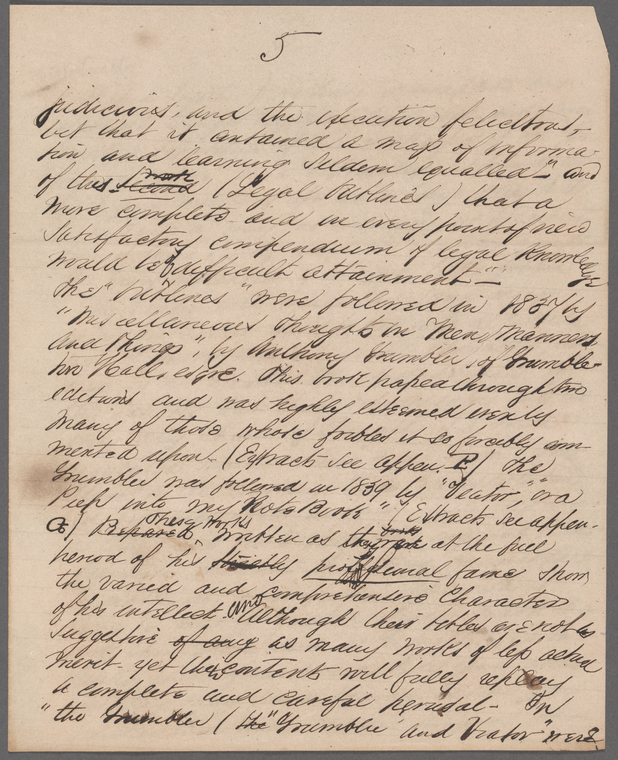 5
judicious, and the execution felicitous,
but that it contained a map of informa-
tion and learning seldom equalled—" and
of this work (Legal Outlines) that a
more complete and in every point of view
satisfactory compendium of legal knowledge
would be of difficult attainment—"
The "Outlines" were followed in 1837 by
"Miscellaneous Thoughts on Men, Manners
and Things", by Anthony Grumbler, of Grumble-
ton Hall, esqr. This book passed through two
editions and was highly esteemed even by
many of those whose foibles it so forcibly com-
mented upon. (Extracts see appen. P) The
Grumbler was followed in 1839 by "Viator," or a
Peep into my Note Book" (Extracts see appen.
These works
written as at the full
period of his professional fame show
the varied and comprehensive character
of his intellect and Although their titles are not as
suggestive of any as many works of less actual
merit yet the contents will fully repay
a complete and careful perusal— In
"the Grumbler (the "Grumbler" and Viator" were